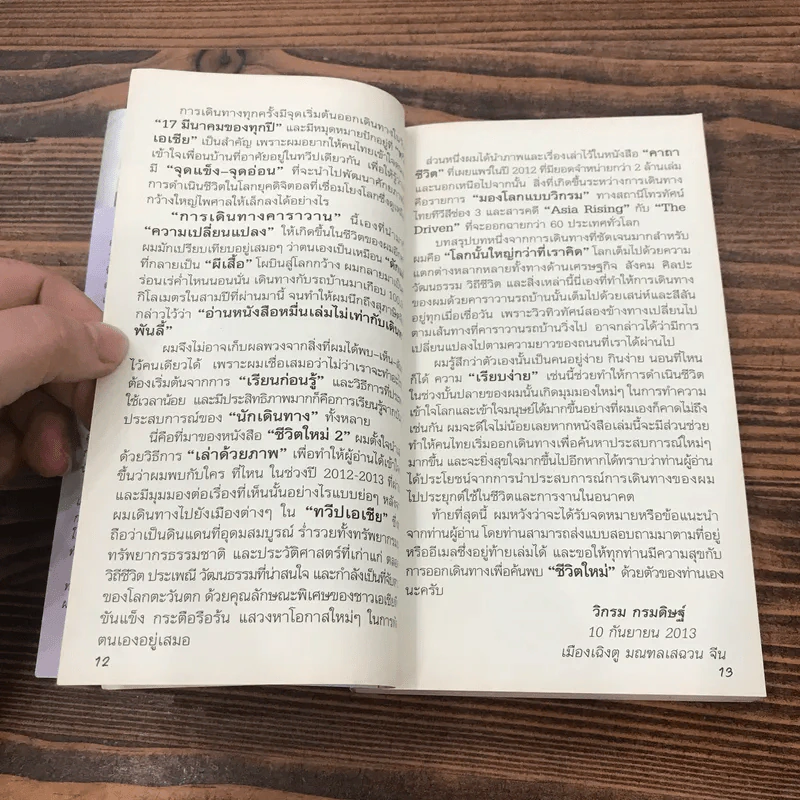 การเดินทางทุกครั้งมีจุดเริ่มต้นออกเดินทางใน
“17 มีนาคมของทุกปี” และมีหมุดหมายปักอยู่ที่
เอเชีย” เป็นสำคัญ เพราะผมอยากให้คนไทยเข้าใจ
เข้าใจเพื่อนบ้านที่อาศัยอยู่ในทวีปเดียวกัน เพื่อให้
มี “จุดแข็ง-จุดอ่อน” ที่จะนำไปพัฒนาศักยภาพ
การดำเนินชีวิตในโลกยุคดิจิตอลที่เชื่อมโยงโลกซึ่งดู
กว้างใหญ่ไพศาลให้เล็กลงได้อย่างไร
“การเดินทางคาราวาน” นี้เองที่นำมา
“ความเปลี่ยนแปลง” ให้เกิดขึ้นในชีวิตของผมอีก
ผมมักเปรียบเทียบอยู่เสมอๆ ว่าตนเองเป็นเหมือน
ที่กลายเป็น “ผีเสื้อ” โผบินสู่โลกกว้าง ผมกลายมาเป็น
ร่อนเร่ค่ำไหนนอนนั่น เดินทางกับรถบ้านมาเกือบ
กิโลเมตรในสามปีที่ผ่านมานี้ จนทำให้ผมนึกถึงสุภาษิต
กล่าวไว้ว่า “อ่านหนังสือหมื่นเล่มไม่เท่ากับเดิน
พันลี้”
ผมจึงไม่อาจเก็บผลพวงจากสิ่งที่ผมได้พบ-เห็น-
ไว้คนเดียวได้ เพราะผมเชื่อเสมอว่าไม่ว่าเราจะทำอะไร
ต้องเริ่มต้นจากการ “เรียนก่อนรู้” และวิธีการที่
ใช้เวลาน้อย และมีประสิทธิภาพมากก็คือการเรียนรู้จาก
ประสบการณ์ของ “นักเดินทาง” ทั้งหลาย
นี่คือที่มาของหนังสือ “ชีวิตใหม่ 2” ผมตั้งใจ
ด้วยวิธีการ “เล่าด้วยภาพ” เพื่อทำให้ผู้อ่านได้เข้าใจ
ขึ้นว่าผมพบกับใคร ที่ไหน ในช่วงปี 2012-2013 ที่
และมีมุมมองต่อเรื่องที่เห็นนั้นอย่างไรแบบย่อๆ
ผมเดินทางไปยังเมืองต่างๆ ใน “ทวีปเอเชีย”
ถือว่าเป็นดินแดนที่อุดมสมบูรณ์ ร่ำรวยทั้งทรัพยากร
ทรัพยากรธรรมชาติ และประวัติศาสตร์ที่เก่าแก่
วิถีชีวิต ประเพณี วัฒนธรรมที่น่าสนใจ และกำลังเป็นที่จับตา
ของโลกตะวันตก ด้วยคุณลักษณะพิเศษของชาวเอเชียที่
ขันแข็ง กระตือรือร้น แสวงหาโอกาสใหม่ๆ ในการ
ตนเองอยู่เสมอ
12
ส่วนหนึ่งผมได้นำภาพและเรื่องเล่าไว้ในหนังสือ “คาถา
ชีวิต” ที่เผยแพร่ในปี 2012 ที่มียอดจำหน่ายกว่า 2 ล้านเล่ม
และนอกเหนือไปจากนั้น สิ่งที่เกิดขึ้นระหว่างการเดินทาง
คือรายการ “มองโลกแบบวิกรม” ทางสถานีโทรทัศน์
ไทยทีวีสีช่อง 3 และสารคดี “Asia Rising” กับ “The
Driven” ที่จะออกฉายกว่า 60 ประเทศทั่วโลก
บทสรุปบทหนึ่งจากการเดินทางที่ชัดเจนมากสำหรับ
ผมคือ “โลกนั้นใหญ่กว่าที่เราคิด” โลกเต็มไปด้วยความ
แตกต่างหลากหลายทั้งทางด้านเศรษฐกิจ สังคม ศิลปะ
วัฒนธรรม วิถีชีวิต และสิ่งเหล่านี้นี่เองที่ทำให้การเดินทาง
ของผมด้วยคาราวานรถบ้านนั้นเต็มไปด้วยเสน่ห์และสีสัน
อยู่ทุกเมื่อเชื่อวัน เพราะวิวทิวทัศน์สองข้างทางเปลี่ยนไป
ตามเส้นทางที่คาราวานรถบ้านวิ่งไป อาจกล่าวได้ว่ามีการ
เปลี่ยนแปลงไปตามความยาวของถนนที่เราได้ผ่านมา
ผมรู้สึกว่าตัวเองนั้นเป็นคนอยู่ง่าย กินง่าย นอนที่ไหน
ก็ได้ ความ “เรียบง่าย” เช่นนี้ช่วยทำให้การดำเนินชีวิต
ในช่วงบั้นปลายของผมนั้นเกิดมุมมองใหม่ๆ ในการทำความ
เข้าใจโลกและเข้าใจมนุษย์ได้มากขึ้นอย่างที่ผมเองก็คาดไม่ถึง
เช่นกัน ผมจะดีใจไม่น้อยเลยหากหนังสือเล่มนี้จะมีส่วนช่วย
ทำให้คนไทยเริ่มออกเดินทางเพื่อค้นหาประสบการณ์ใหม่ๆ
มากขึ้น และจะยิ่งสุขใจมากขึ้นไปอีกหากได้ทราบว่าท่านผู้อ่าน
ได้ประโยชน์จากการนำประสบการณ์การเดินทางของผม
ไปประยุกต์ใช้ในชีวิตและการงานในอนาคต
ท้ายที่สุดนี้ ผมหวังว่าจะได้รับจดหมายหรือข้อแนะนำ
จากท่านผู้อ่าน โดยท่านสามารถส่งแบบสอบถามมาตามที่อยู่
หรืออีเมลซึ่งอยู่ท้ายเล่มได้ และขอให้ทุกท่านมีความสุขกับ
การออกเดินทางเพื่อค้นพบ “ชีวิตใหม่” ด้วยตัวของท่านเอง
นะครับ
วิกรม กรมดิษฐ์
10 กันยายน 2013
เมืองเฉิงตู มณฑลเสฉวน จีน
13